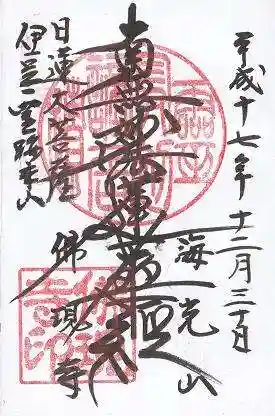 平成十七年十二月三十日
南無妙法蓮華經
日蓮大菩薩
伊豆霊跡本山
海光山
佛現寺